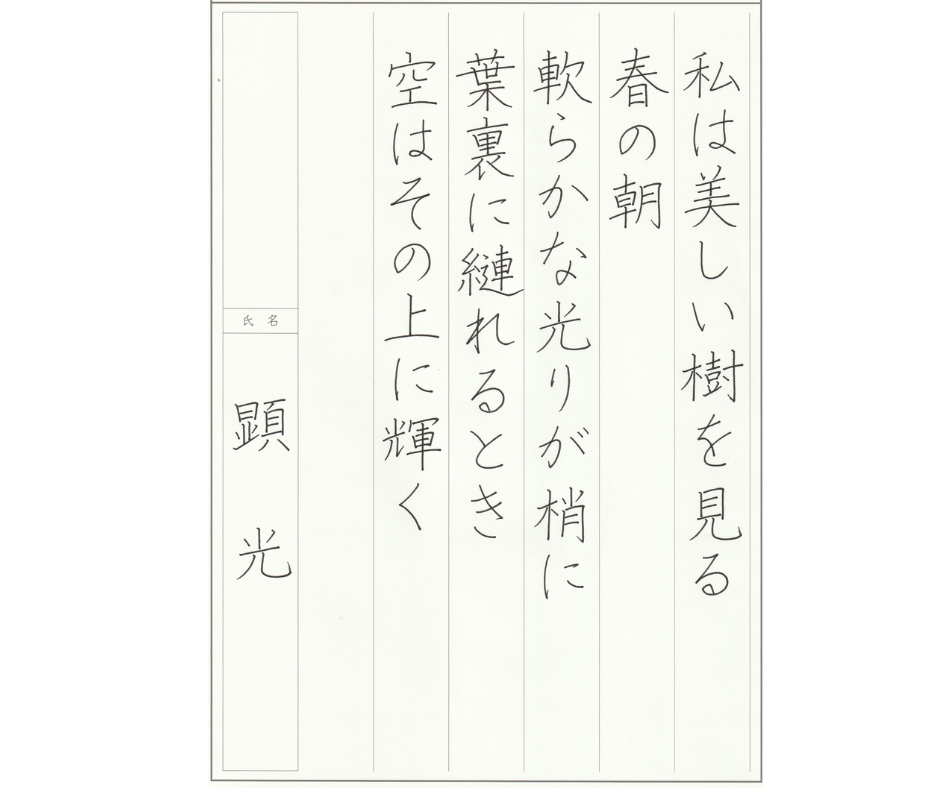 私は美しい樹を見る
春の朝
軟らかな光りが梢に
葉裏に縺れるとき
空はその上に輝く
氏名
顕光